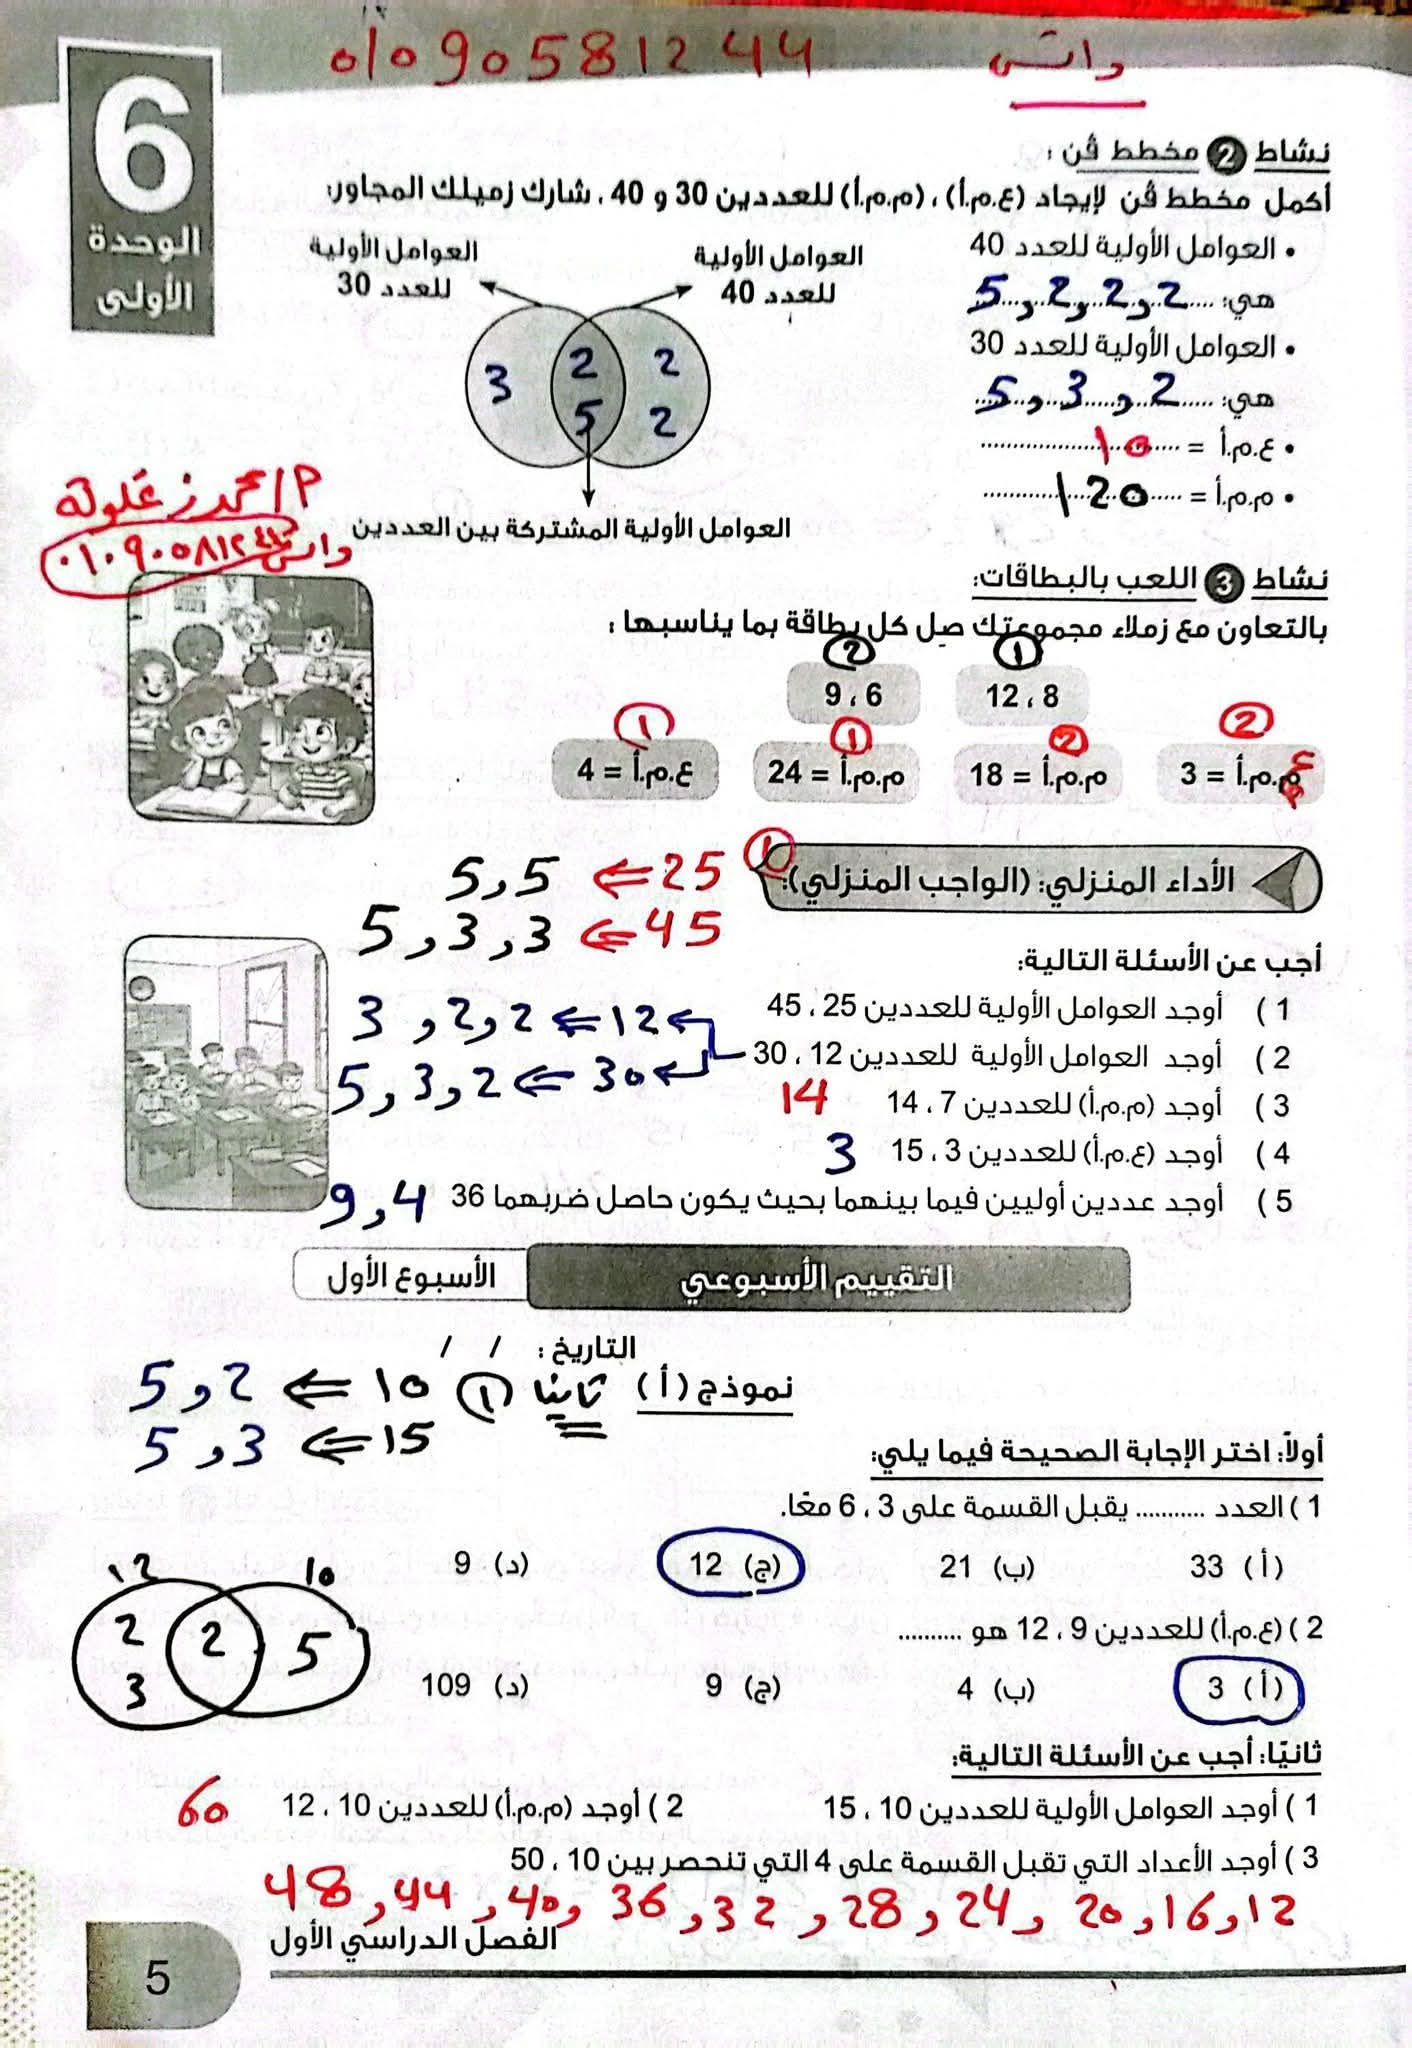 واتس 01090581244
6
الوحدة
الأولى
نشاط 2 مخطط ڤن :
أكمل مخطط ڤن لإيجاد (ع.م.أ) ، (م.م.أ) للعددين 30 و 40 ، شارك زميلك المجاور:
• العوامل الأولية للعدد 40
هي: 2 , 2 , 2 , 5
• العوامل الأولية للعدد 30
هي: 2 , 3 , 5
• ع.م.أ = 10
• م.م.أ = 120
العوامل الأولية
للعدد 40
العوامل الأولية
للعدد 30
3 2 2
5 2
العوامل الأولية المشتركة بين العددين
أ/ محمد زغلولة
واتس ٠١٠٩٠٥٨١٢٤٤
نشاط 3 اللعب بالبطاقات:
بالتعاون مع زملاء مجموعتك صِل كل بطاقة بما يناسبها :
1 2
8 ، 12 6 ، 9
2 2 1 1
م.م.أ = 3 م.م.أ = 18 م.م.أ = 24 ع.م.أ = 4
ع
الأداء المنزلي: (الواجب المنزلي):
1 25 ⇐ 5 , 5
45 ⇐ 3 , 3 , 5
أجب عن الأسئلة التالية:
1 ) أوجد العوامل الأولية للعددين 25 ، 45
2 ) أوجد العوامل الأولية للعددين 12 ، 30
12 ⇐ 2 , 2 , 3
30 ⇐ 2 , 3 , 5
3 ) أوجد (م.م.أ) للعددين 7 ، 14 14
4 ) أوجد (ع.م.أ) للعددين 3 ، 15 3
5 ) أوجد عددين أوليين فيما بينهما بحيث يكون حاصل ضربهما 36 4 , 9
التقييم الأسبوعي الأسبوع الأول
التاريخ : / /
نموذج ( أ ) ثانيا 1 10 ⇐ 2 , 5
15 ⇐ 3 , 5
أولاً: اختر الإجابة الصحيحة فيما يلي:
1 ) العدد .......... يقبل القسمة على 3 ، 6 معًا.
( أ ) 33 (ب) 21 (ج) 12 (د) 9
2 ) (ع.م.أ) للعددين 9 ، 12 هو ..........
( أ ) 3 (ب) 4 (ج) 9 (د) 109
12 10
2 2 5
3
ثانيًا: أجب عن الأسئلة التالية:
1 ) أوجد العوامل الأولية للعددين 10 ، 15
2 ) أوجد (م.م.أ) للعددين 10 ، 12 60
3 ) أوجد الأعداد التي تقبل القسمة على 4 التي تنحصر بين 10 ، 50
12 , 16 , 20 , 24 , 28 , 32 , 36 , 40 , 44 , 48
الفصل الدراسي الأول
5